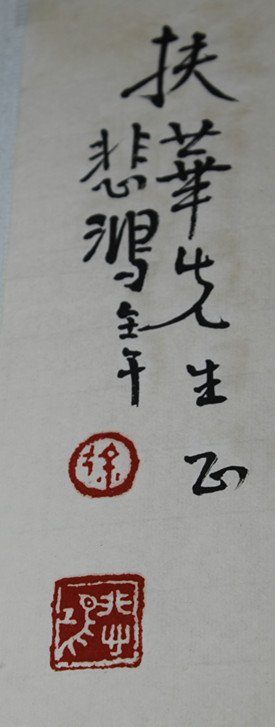 扶華先生正
悲鴻壬午
徐
悲鴻